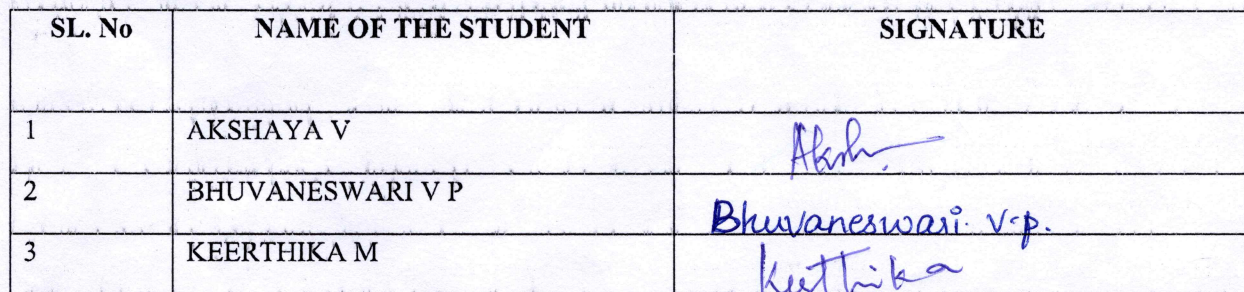 SL. No NAME OF THE STUDENT SIGNATURE
1 AKSHAYA V Aksh
2 BHUVANESWARI V P Bhuvaneswari. v.p.
3 KEERTHIKA M Keerthika